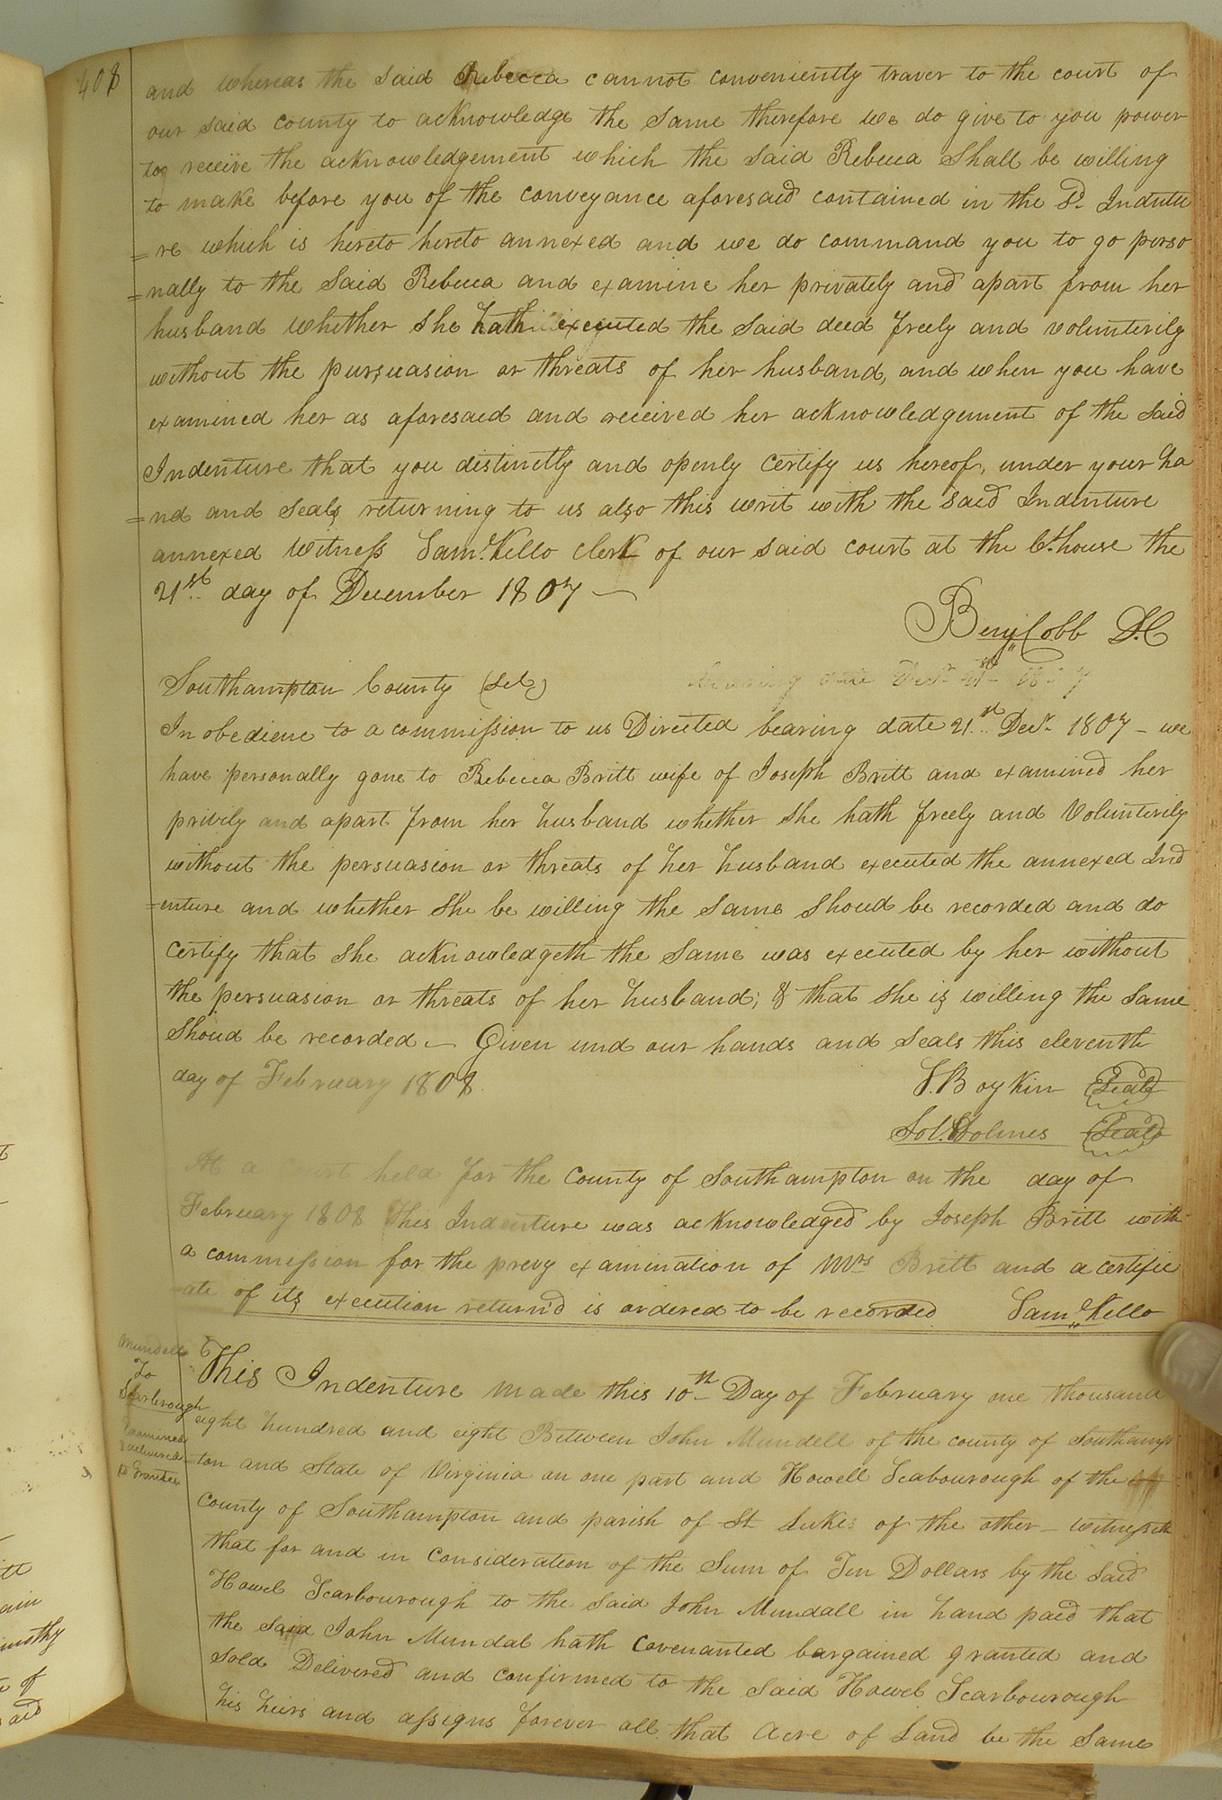 408
and whereas the said Rebecca cannot conveniently traver to the court of
our said county to acknowledge the same therefore we do give to you power
to receive the acknowledgement which the said Rebecca Shall be willing
to make before you of the conveyance aforesaid contained in the Sd. Indentu
=re which is hereto hereto annexed and we do command you to go perso
=nally to the said Rebecca and examine her privately and apart from her
husband whether she hath executed the said deed freely and volunterily
without the pursuasion or threats of her husband, and when you have
examined her as aforesaid and received her acknowledgement of the said
Indenture that you distinctly and openly certify us hereof, under your ha
=nd and seals returning to us also this writ with the said Indenture
annexed Witness Saml. Kello clerk of our said court at the Ct. house the
21st day of December 1807
Benj Cobb D.C
Southampton County (Sct)
bearing date Decr. 21st 1807
In obedience to a commission to us Directed bearing date 21st Decr. 1807 - we
have personally gone to Rebecca Britt wife of Joseph Britt and examined her
privily and apart from her husband whether she hath freely and Volunterily
without the persuasion or threats of her husband executed the annexed Ind
=enture and whether she be willing the same shoud be recorded and do
certify that she acknowledgeth the same was executed by her without
the persuasion or threats of her husband; & that she is willing the same
shoud be recorded - Given und our hands and seals this eleventh
day of February 1808
S. Boykin Seal
Sol. Holmes Seal
At a Court held for the county of Southampton on the day of
February 1808 This Indenture was acknowledged by Joseph Britt with
a commission for the prevy examination of Mrs Britt and a certific
ate of its execution return'd is ordered to be recorded Saml. Kello
Mundell
To
Scarbrough
Examined
& delivered
to Grantee
This Indenture made this 10th Day of February one thousand
eight hundred and eight Between John Mundell of the county of Southamp
ton and State of Virginia on one part and Howell Scabourough of the
county of Southampton and parish of St Lukes of the other - witnesseth
that for and in consideration of the Sum of Ten Dollars by the said
Howel Scarbourough to the said John Mundall in hand paid that
the said John Mundal hath covenanted bargained granted and
sold Delivered and confirmed to the said Howel Scarbourough
his heirs and assigns forever all that Acre of Land be the same